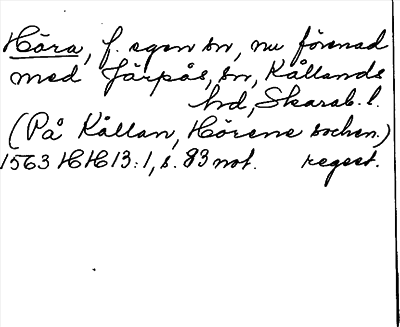 Höra, f. egen sn, nu förenad
med Järpås, sn, Kållands
hd, Skarab. l.
(På Kållan, Hörene sochen.)
1563 HH 13:1, s. 83 not. regest.